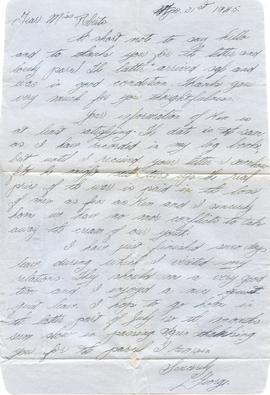 Dear Miss Roberts
21st 1945.
A short note to say hello
and to thank you for the letter and
lovely parcel. The latter arriving and
was in good condition, thank you
very much for your thoughtfulness.
Your information of Ken is
at least satisfying. The date is the same
as I have recorded in my log book,
but until I received your letter I
price of the war is paid in the loss
of men as fine as Ken and I sincerely
hope we have no more conflicts to take
away the cream of our youth.
I have just finished seven days
leave during which I visited my
relations. They showed me a very good
time and I enjoyed a nice quiet
leave. I hope to go home in
the latter part of July or the months
you for the parcel I remain
Sincerely
George.